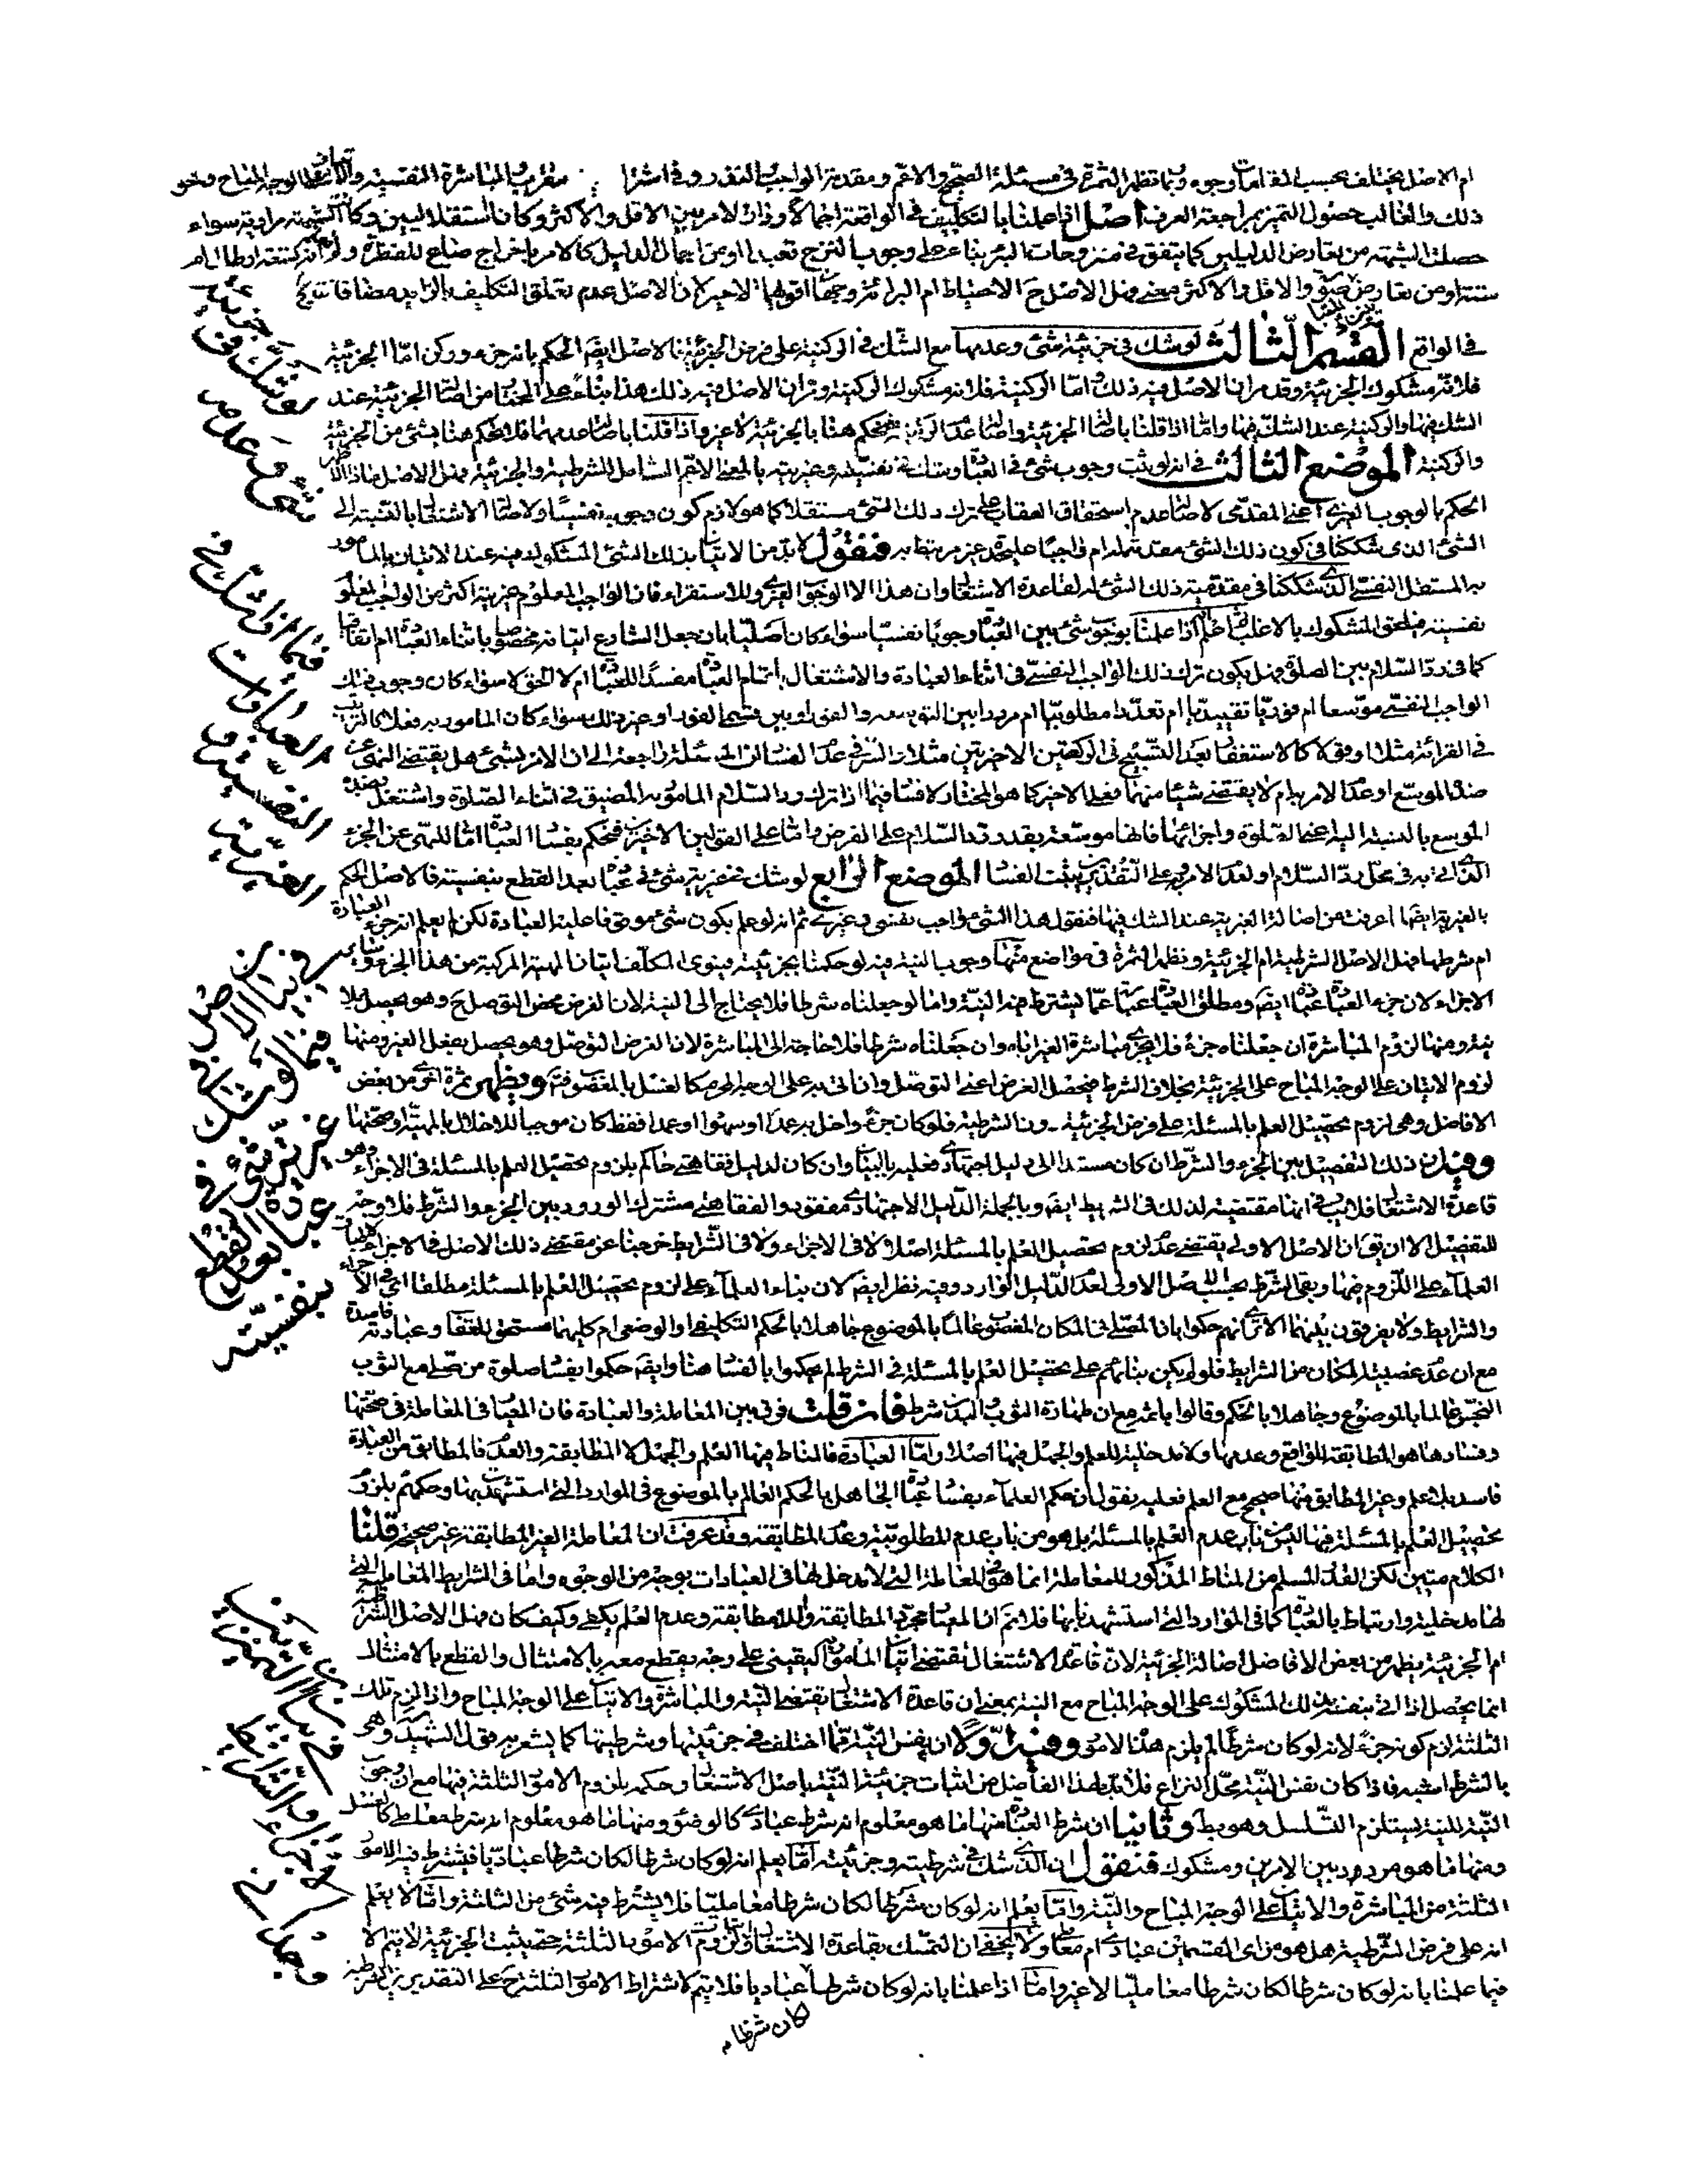 ام الاصل يختلف بحسب المقامات وجوه وربما تظهر الثمرة فى مسئلة الصحيح والاعم ومقدمة الواجب
ذلك والغالب حصول التميز بمراجعة العرف اصل اذا علمنا بالتكليف فى الواقعة اجمالا ودار الامر بين الاقل والاكثر وكانا استقلاليين وكان الشبهة مرادية سواء
حصلت الشبهة من تعارض الدليلين كما يتفق فى منزوحات البئر بناء على وجوب النزح تعبدا او من اجمال الدليل كالامر باخراج صاع للفطرة
والاقل والاكثر فهل الاصل ح الاحتياط ام البرائة وجهان اقواهما الاخير لان الاصل عدم تعلق التكليف بالزايد مضافا
فى الواقع القسم الثالث لو شك فى جزئية شئ وعدمها مع الشك فى الركنية على فرض الجزئية فالاصل ايضا الحكم بانه جزء وركن اما الجزئية
فلانه مشكوك الجزئية وقد مر ان الاصل فيه ذلك واما الركنية فلانه مشكوك الركنية ومر ان الاصل فيه ذلك هذا بناء على المختار من اصالة الجزئية عند
الشك فيها والركنية عند الشك فيها واما اذا قلنا باصالة الجزئية واصالة عدم الركنية فنحكم هنا بالجزئية لا غير واذا قلنا باصالة عدمهما فلا نحكم هنا بشئ من الجزئية
والركنية الموضع الثالث فى انه لو ثبت وجوب شئ فى العبادة وشك فى نفسيته وغيريته بالمعنى الاعم الشامل للشرطية والجزئية فهل الاصل ماذا
الحكم بالوجوب الغيرى اعنى المقدمى لاصالة عدم استحقاق العقاب على ترك ذلك الشئ مستقلا كما هو لازم كون وجوبه نفسيا ولاصالة الاشتغال بالنسبة الى
الشئ الذى شككنا فى كون ذلك الشئ مقدمة له ام واجبا عليحدة غير مرتبط به فنقول لا بد من الاتيان بذلك الشئ المشكوك فيه عند الاتيان بالمامور
به المستقل النفسى الذى شككنا فى مقدمية ذلك الشئ له لقاعدة الاشتغال وان هذا الا الوجوب الغيرى وللاستقراء فان الواجب المعلوم غيريته اكثر من الواجب المعلوم
نفسيته فيلحق المشكوك بالاغلب ثم اعلم اذا علمنا بوجوب شئ بين العبادة وجوبا نفسيا سواء كان اصليا بان جعل الشارع اتيانه مخصوصا باثناء العبادة ام اتفاقيا
كما فى رد السلام بين الصلوة فهل يكون ترك ذلك الواجب النفسى فى اثناء العبادة والاشتغال باتمام العبادة مفسدا للعبادة ام لا الحق لا سواء كان وجوب ذلك
الواجب النفسى موسعا ام فوريا تقييديا ام تعدد مطلوبيا ام مرددا بين التوسعة والفور او بين قسمى الفور او غير ذلك سواء كان المامور به فعلا كالترتيب
فى القرائة مثلا او قولا كالاستغفار بعد التسبيح فى الركعتين الاخيرتين مثلا والسر فى عدم الفساد ان المسئلة راجعة الى ان الامر بشئ هل يقتضى النهى عن
ضده الموسع او عدم الامر به ام لا يقتضى شيئا منهما فعلى الاخير كما هو المختار لا فساد فيما اذا ترك رد السلام المامور به المضيق فى اثناء الصلوة واشتغل بضده
الموسع بالنسبة اليه اعنى الصلوة واجزائها فانها موسعة بقدر رد السلام على الفرض واما على القولين الاخيرين فنحكم بفساد العبادة اما للنهى عن الجزء
الذى اتى به فى محل رد السلام او لعدم الامر به وعلى التقديرين يثبت الفساد الموضع الرابع لو شك فى غيرية شئ فى عبادة بعد القطع بنفسيته فالاصل الحكم
بالغيرية ايضا لما عرفت من اصالة الغيرية عند الشك فيها فنقول هذا الشئ واجب نفسى وغيرى ثم انه لو علم بكون شئ موقوفا عليه العبادة لكن لم يعلم انه جزء العبادة
ام شرطها فهل الاصل الشرطية ام الجزئية وتظهر الثمرة فى مواضع منها وجوب النية فيه لو حكمنا بجزئيته فينوى المكلف اتيان المهية المركبة من هذا الجزء وساير
الاجزاء لان جزء العبادة عبادة ايضا ومطلق العبادة عبادة عما يشترط فيه النية واما لو جعلناه شرطا فلا يحتاج الى النية لان الفرض محض التوصل ح وهو يحصل بلا
نية ومنها لزوم المباشرة ان جعلناه جزء فلا يجزى مباشرة الغير اياه وان جعلناه شرطا فلا حاجة الى المباشرة لان الغرض التوصل وهو يحصل بفعل الغير ومنها
لزوم الاتيان على الوجه المباح على الجزئية بخلاف الشرط فيحصل الغرض اعنى التوصل وان اتى به على الوجه المحرم كالغسل بالمغصوب فتم ويظهر ثمرة اخرى من بعض
الافاضل وهى لزوم تحصيل العلم بالمسئلة على فرض الجزئية دون الشرطية فلو كان جزء واخل به عمدا او سهوا او عمدا فقط كان موجبا للاخلال بالمهية وصحتها
وفيه ان ذلك التفصيل بين الجزء والشرط ان كان مستندا الى دليل اجتهادى فعليه بالبيان وان كان لدليل فقاهتى حاكم بلزوم تحصيل العلم بالمسئلة فى الاجزاء وهو
قاعدة الاشتغال فلا ريب فى انها مقتضية لذلك فى الشرايط ايضا وبالجملة الدليل الاجتهادى مفقود والفقاهتى مشترك الورود بين الجزء والشرط فلا وجه
للتفصيل الا ان يقال ان الاصل الاولى يقتضى عدم لزوم تحصيل العلم بالمسئلة اصلا لا فى الاجزاء ولا فى الشرايط خرجنا عن مقتضى ذلك الاصل فى الاجزاء
العلماء على اللزوم فيها وبقى الشرط بحسب الاصل الاولى لعدم الدليل الوارد وفيه نظر ايضا لان بناء العلماء على لزوم تحصيل العلم بالمسئلة مطلقا اى فى الاجزاء
والشرايط ولا يفرقون بينهما الا ترى انهم حكموا بان المصلى فى المكان المغصوب عالما بالموضوع جاهلا بالحكم التكليفى او الوضعى ام كليهما مستحق للعقاب وعبادته فاسدة
مع ان عدم غصبية المكان من الشرايط فلو لم يكن بنائهم على تحصيل العلم بالمسئلة فى الشرط لم يحكموا بالفساد هنا وايضا حكموا بفساد صلوة من صلى مع الثوب
النجس عالما بالموضوع وجاهلا بالحكم وقالوا باثمه مع ان طهارة الثوب والبدن شرط فان قلت فرق بين المعاملة والعبادة فان المعيار فى المعاملة فى صحتها
وفسادها هو المطابقة للواقع وعدمها ولا مدخلية للعلم والجهل فيها اصلا واما العبادة فالمناط فيها العلم والجهل لا المطابقة والعدم فالمطابق من العبادة
فاسد بلا علم وغير المطابق منها صحيح مع العلم فعليه يقول ان حكم العلماء بفساد عبادة الجاهل بالحكم العالم بالموضوع فى الموارد التى استشهدت بها وحكمهم بلزوم
تحصيل العلم بالمسئلة فيها ليس من باب عدم العلم بالمسئلة بل هو من باب عدم المطلوبية وعدم المطابقة وقد عرفت ان المعاملة الغير المطابقة غير صحيحة قلنا
الكلام متين لكن القدر المسلم من المناط المذكور للمعاملة انما هو فى المعاملة التى لا مدخل لها فى العبادات بوجه من الوجوه واما فى الشرايط المعاملية التى
لها مدخلية وارتباط بالعبادة كما فى الموارد التى استشهدنا بها فلا نم ان المعيار مجرد المطابقة واللامطابقة وعدم العلم يكفى وكيف كان فهل الاصل الشرطية
ام الجزئية يظهر من بعض الافاضل اصالة الجزئية لان قاعدة الاشتغال تقتضى اتيان المامور به اليقينى على وجه يقطع معه بالامتثال والقطع بالامتثال
انما يحصل اذا اتى بنفسه بذلك المشكوك على الوجه المباح مع النية بمعنى ان قاعدة الاشتغال تقتضى النية والمباشرة والاتيان على الوجه المباح واذا لزم تلك
الثلثة لزم كونه جزء لانه لو كان شرطا لم يلزم هذه الامور وفيه اولا ان نفس النية مما اختلف فى جزئيتها وشرطيتها كما يشعر به قول الشهيد وهى
بالشرط اشبه فاذا كان نفس النية محل النزاع فلا بد لهذا الفاضل من اثبات جزئية النية باصل الاشتغال وحكم بلزوم الامور الثلثة فيها مع ان وجوب
النية للنية يستلزم التسلسل وهو بط وثانيا ان شرط العبادة منها ما هو معلوم انه شرط عبادى كالوضوء ومنها ما هو معلوم انه شرط معاملى كالغسل
ومنها ما هو مردد بين الامرين ومشكوك فنقول ان الذى شك فى شرطيته وجزئيته اما يعلم انه لو كان شرطا لكان شرطا عباديا فيشترط فيه الامور
الثلثة من المباشرة والاتيان على الوجه المباح والنية واما يعلم انه لو كان شرطا لكان شرطا معامليا فلا يشترط فيه شئ من الثلثة واما لا يعلم
انه على فرض الشرطية هل هو من اى القسمين عبادى ام معاملى ولا يخفى ان التمسك بقاعدة الاشتغال ولزوم الامور الثلثة حتى يثبت الجزئية لا يتم الا
فيما علمنا بانه لو كان شرطا لكان شرطا معامليا لا غير واما اذا علمنا بانه لو كان شرطا لكان شرطا عباديا فلا يتم لاشتراط الامور الثلثة ح على التقديرين
لو شك فى جزئية
شئ وعدمه
فيما اذا شك فى
العبادات
النفسية و
الغيرية
فى بيان الاصل
فيما لو شك فى
غيرية شئ فى
عبادة بعد القطع
بنفسيته
فى بيان التميز بين
الاجزاء والشرايط
كان شرطا م